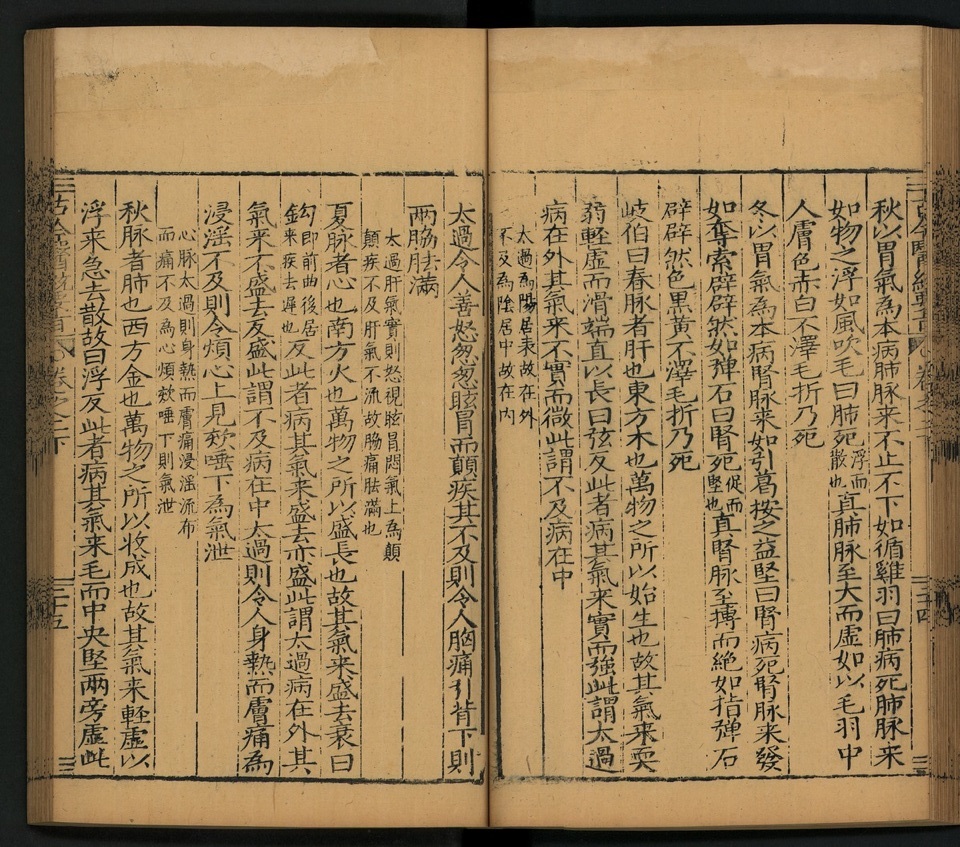 秋以胃氣為本病肺脉来不止不下如循雞羽曰肺病死肺脉来
如物之浮如風吹毛曰肺死浮而散也真肺脉至大而虚如以毛羽中
人膚色赤白不澤毛折乃死
冬以胃氣為本病腎脉来如引葛按之益堅曰腎病死腎脉来發
如奪索辟辟然如弹石曰腎死促而堅也真腎脉至摶而絶如指弹石
辟辟然色黒黄不澤毛折乃死
岐伯曰春脉者肝也東方木也萬物之所以始生也故其氣来耎
弱軽虚而滑端直以長曰弦反此者病其氣来實而強此謂太過
病在外其氣来不實而微此謂不及病在中
太過為陽居表故在外
不及為陰居中故在内
太過令人善怒忽忽眩冒而顛疾其不及則令人胸痛引背下則
兩脇胠滿
太過肝氣實則怒視眩冒悶氣上為顛
顛疾不及肝氣不流故脇痛胠滿也
夏脉者心也南方火也萬物之所以盛長也故其氣来盛去衰曰
鈎即前曲後居来疾去遲也反此者病其氣来盛去亦盛此謂太過病在外其
氣来不盛去反盛此謂不及病在中太過則令人身熱而膚痛為
浸淫不及則令煩心上見欬唾下為氣泄
心脉太過則身熱而膚痛浸滛流布
而痛不及為心煩欬唾下則氣泄
秋脉者肺也西方金也萬物之所以收成也故其氣来軽虚以
浮来急去散故曰浮反此者病其氣来毛而中央堅兩旁虚此
卷之二下
二十四
卷之二下
二十五